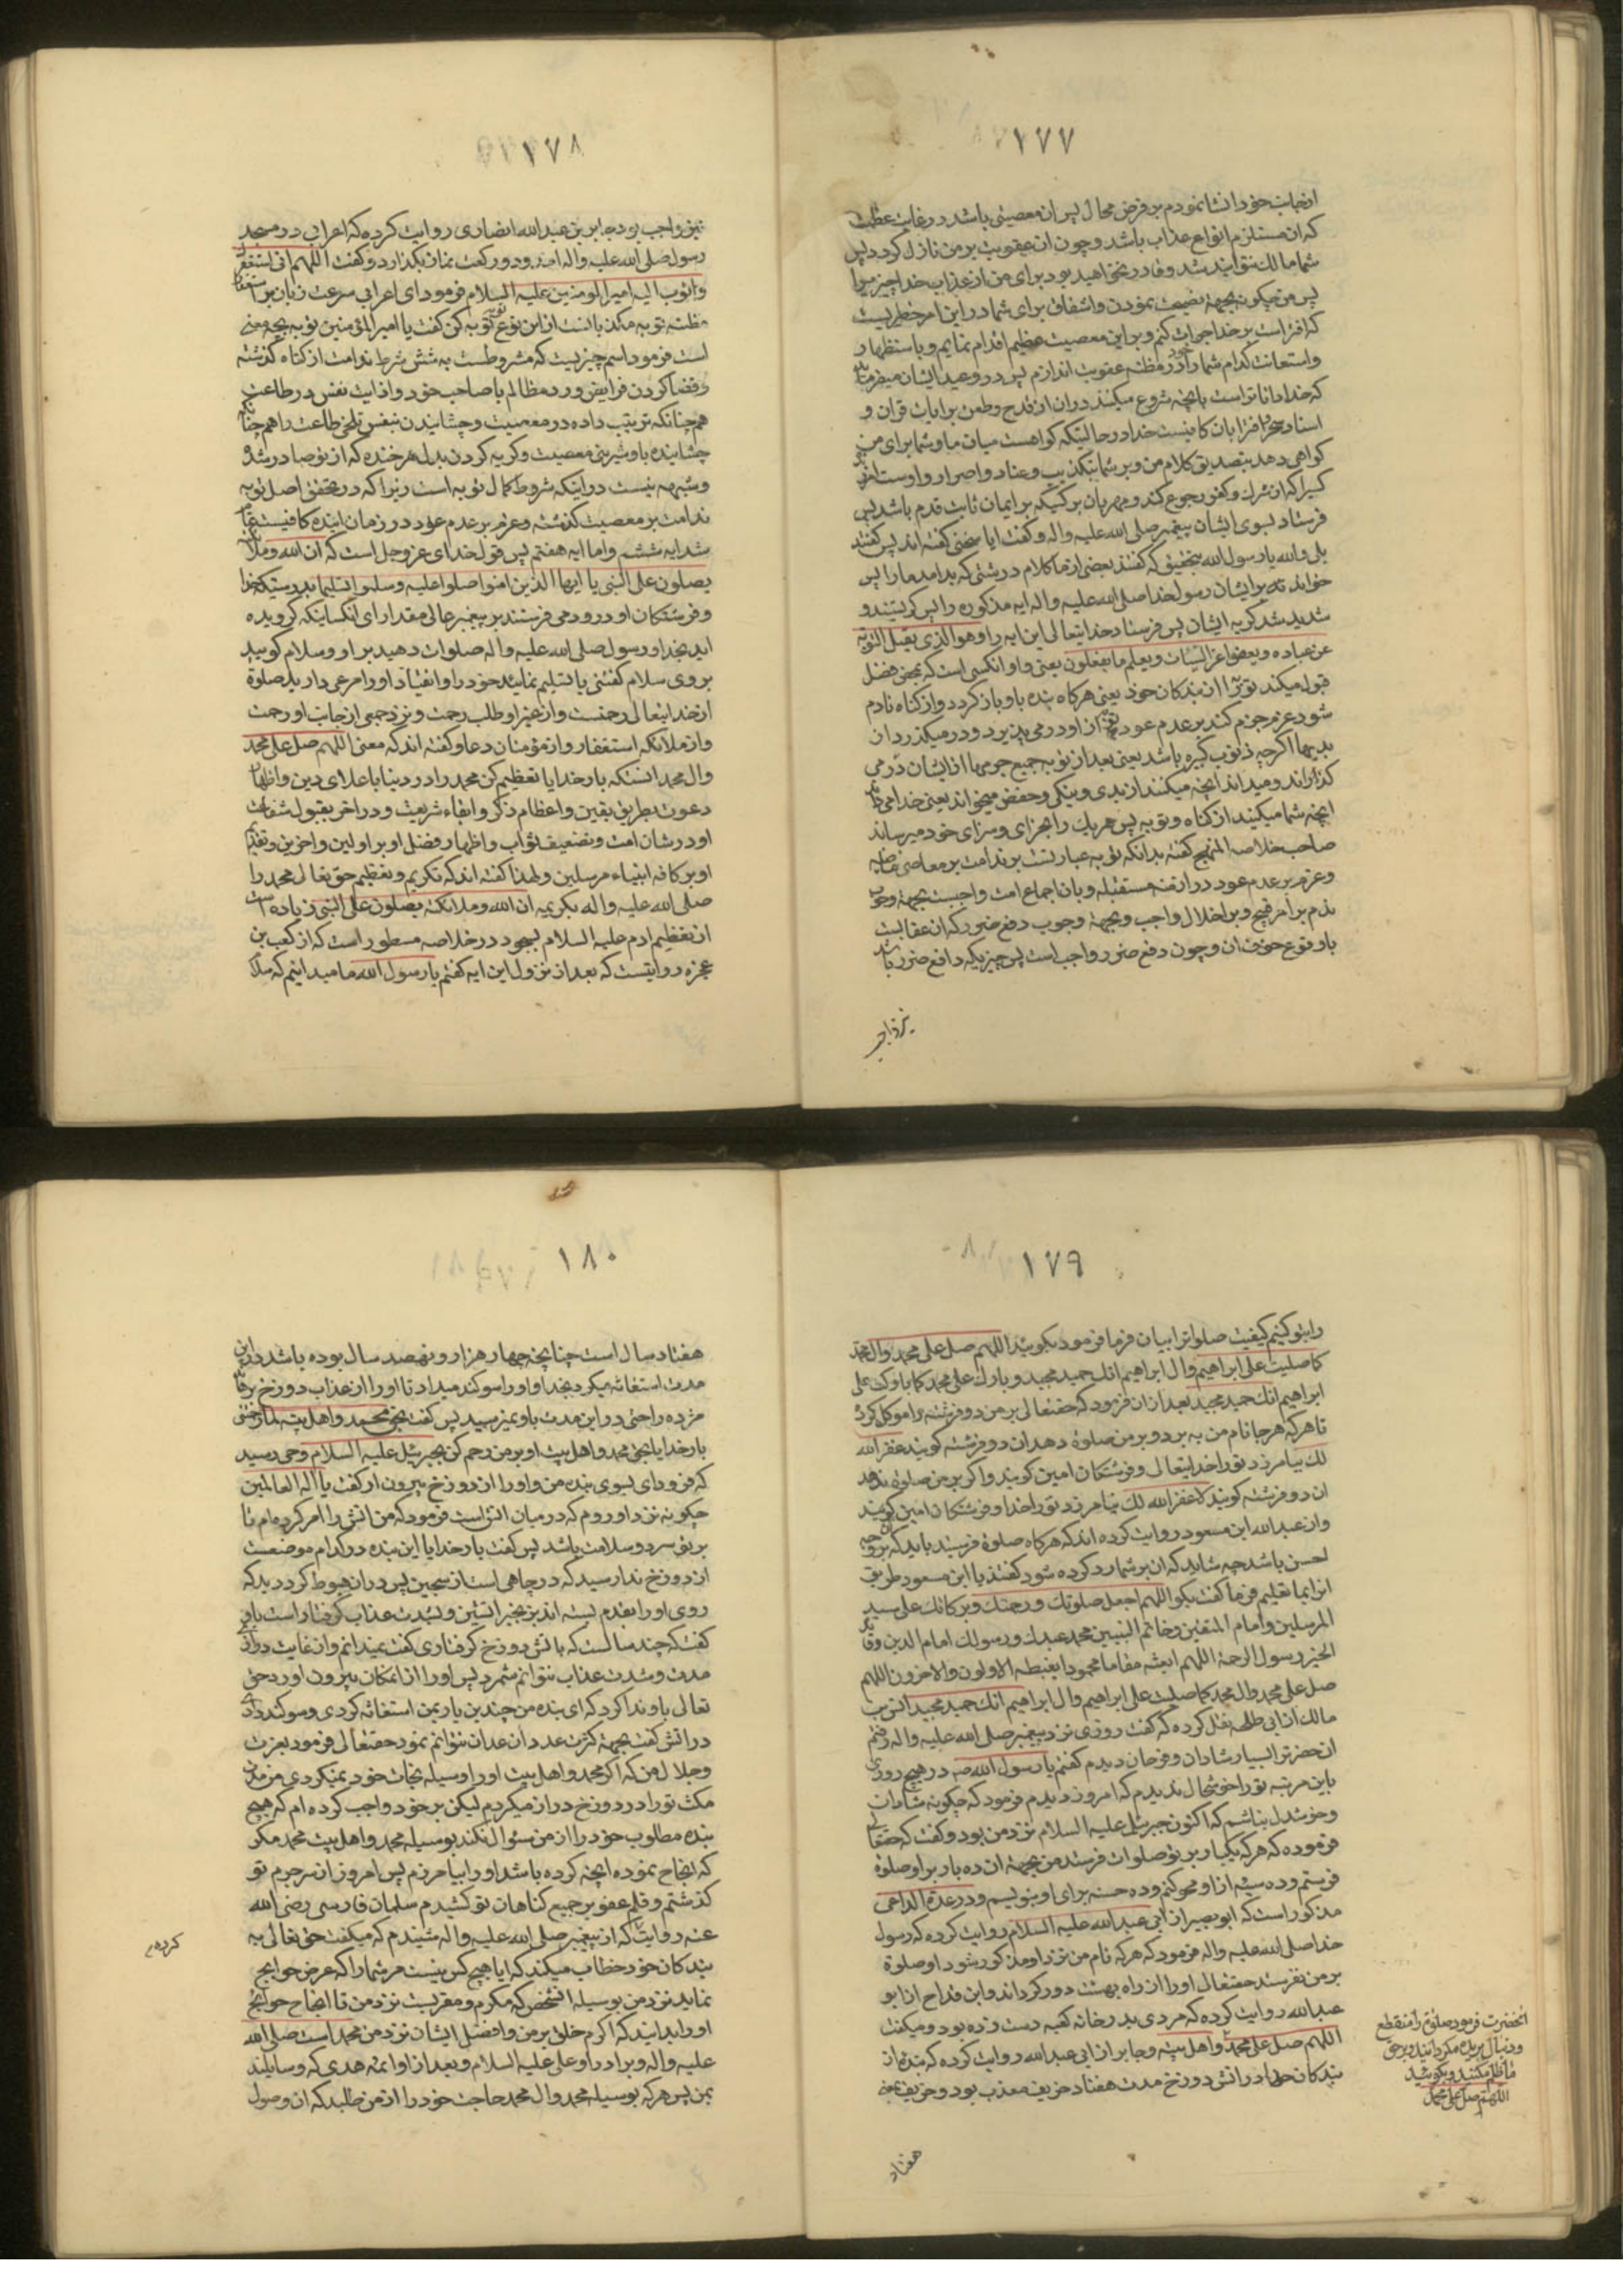 ۱۷۷
ازجانب خود انشا نمودم بر فرض محال پس ان معصیتی باشد در غایت عظمت
که ان مستلزم انواع عذاب باشد و چون ان عقوبت بر من نازل کردد پس
شما مالک نتوانید شد و قادر نخواهید بود برای من از عذاب خدا چیزیرا
پس من چکونه بجهة نصیحت نمودن و اشفاق برای شما در این امر خطیریست
که افتراست بر خدا جرات کنم و بر این معصیت عظیم اقدام نمایم و باستظهار
و استعانت کدام شما خود را در مظنه عقوبت اندازم پس در وعید ایشان میفرماید
که خدا داناتر است بانچه شروع میکنید در ان از قدح و طعن بر ایات قران و
اسناد سحر و افترا بان کافیست خدا در حالتیکه کواهست میان ما و شما برای من
کواهی دهد بتصدیق کلام من و بر شما بتکذیب و عناد و اصرار و اوست امرزنده
کسیرا که از شرک و کفر رجوع کند و مهربان بر کسیکه بر ایمان ثابت قدم باشد پس
فرستاد بسوی ایشان پیغمبر صلی الله علیه واله و کفت ایا سخنی کفته اند پس کفتند
بلی والله یا رسول الله بتحقیق که کفتند بعضی از ما کلام درشتی که بد امد ما را پس
خواند بر ایشان رسول خدا صلی الله علیه واله ایه مذکوره را پس کریستند و
شدید شد کریه ایشان پس فرستاد خدایتعالی این ایه را و هو الذی یقبل التوبة
عن عباده و یعفو عن السیئات و یعلم ما یفعلون یعنی و او انکسی است که بمحض فضل
قبول میکند توبه را از بندکان خود یعنی هرکاه بنده باو باز کردد و از کناه نادم
شود و عزم جزم کند بر عدم عود توبه از او در می پذیرد و در میکذرد از
بدیها اکرچه ذنوب کبیره باشد یعنی بعد از توبه جمیع جرمها از ایشان در می
کذراند و میداند انچه میکنند از بدی و نیکی و حفص میخواند یعنی خدا می داند
انچه شما میکنید از کناه و توبه پس هر یک را بجزای و سزای خود میرساند
صاحب خلاصه المنهج کفته بدانکه توبه عبارتست بر ندامت بر معاصی ماضیه
و عزم بر عدم عود در ازمنه مستقبله و بان اجماع امت واجبست بجهة وجوب
ندم بر امر قبیح و بر اخلال واجب و بجهة وجوب دفع ضرر که ان عقابست
با وقوع خوف ان و چون دفع ضرر واجب است پس چیزیکه دافع ضرر باشد
نیز واجب
۱۷۸
نیز واجب بود جابر بن عبدالله انصاری روایت کرده که اعرابی در مسجد
رسول صلی الله علیه واله امد و دو رکعت نماز بکذارد و کفت اللهم انی استغفرک
و اتوب الیه امیر المومنین علیه السلام فرمود ای اعرابی سرعت زبان بر استغفار
مظنه توبه مکذبانست از این نوع توبه توبه کن کفت یا امیر المؤمنین توبه بچه معنی
است فرمود اسم چیزیست که مشروطست به شش شرط ندامت از کناه کذشته
و قضا کردن فرایض و رد مظالم با صاحب حق و اذابت نفس در طاعت
هم چنانکه تربیت داده در معصیت و چشانیدن نفس تلخی طاعت را هم چنانکه
چشانیده باو شیرینی معصیت و کریه کردن بدل هر خنده که از تو صادر شد
و شبهه نیست در اینکه شروط کمال توبه است زیرا که در تحقق اصل توبه
ندامت بر معصیت کذشته و عزم بر عدم عود در زمان اینده کافیست تمام
شد ایه ششم و اما ایه هفتم پس قول خدای عزوجل است که ان الله و ملائکته
یصلون علی النبی یا ایها الذین امنوا صلوا علیه و سلموا تسلیما بدرستیکه خدا
و فرشتکان او درود می فرستند بر پیغمبر عالی مقدار ای انکسانیکه کرویده
اید بخدا و رسول صلی الله علیه واله صلوات دهید بر او و سلام کویید
بر وی سلام کفتنی یا تسلیم نمایید خود را و انقیاد او را مرعی دارید صلوة
از خدایتعالی رحمتست و از غیر او طلب رحمت و نزد جمعی از جانب او رحمت
و از ملائکه استغفار و از مؤمنان دعا و کفته اند که معنی اللهم صل علی محمد
وال محمد انستکه بار خدایا تعظیم کن محمد را در دنیا باعلای دین و اظهار
دعوت بطریق یقین و اعظام ذکر و ابقاء شریعت و در اخر بقبول شفاعت
او در شان امت و تضعیف ثواب و اظهار فضل او بر اولین و اخرین و تقدیم
او بر کافه انبیاء مرسلین و لهذا کفته اند که تکریم و تعظیم حق تعالی محمد را
صلی الله علیه واله بکریمه ان الله و ملائکته یصلون علی النبی زیاده است
از تعظیم ادم علیه السلام بسجود در خلاصه مسطور است که از کعب بن
عجزه روایتست که بعد از نزول این ایه کفتم یا رسول الله ما میدانیم که سلام
۱۷۹
را بتو کنیم کیفیت صلوات را بیان فرما فرمود بکویید اللهم صل علی محمد وال محمد
کما صلیت علی ابراهیم وال ابراهیم انک حمید مجید و بارک علی محمد کما بارکت علی
ابراهیم انک حمید مجید بعد از ان فرمود که حقتعالی بر من دو فرشته را موکل کرد
تا هرکه هرجا نام من به برد و بر من صلوة دهد ان دو فرشته کویند غفر الله
لک بیامرزد تو را خدایتعالی و فرشتکان امین کویند و اکر بر من صلوة ندهد
ان دو فرشته کویند لا غفر الله لک نیامرزد تو را خدا و فرشتکان امین کویند
و از عبدالله ابن مسعود روایت کرده اند که هرکاه صلوة فرستید باید که بر وجه
احسن باشد چه شاید که ان بر شما رد کرده شود کفتند یا ابن مسعود طریق
انرا بما تعلیم فرما کفت بکو اللهم اجعل صلوتک و رحمتک و برکاتک علی سید
المرسلین و امام المتقین و خاتم النبیین محمد عبدک و رسولک امام الدین و قائد
الخیر و رسول الرحمة اللهم ابعثه مقاما محمودا یغبطه الاولون والاخرون اللهم
صل علی محمد وال محمد کما صلیت علی ابراهیم وال ابراهیم انک حمید مجید انس بن
مالک از ابی طلحه نقل کرده که کفت روزی نزد پیغمبر صلی الله علیه واله رفتم
انحضرترا بسیار شادان و فرحان دیدم کفتم یا رسول الله در هیچ روزی
باین مرتبه تو را خوشحال ندیدم که امروز دیدم فرمود که چکونه شادان
و خوشدل نباشم که اکنون جبرئیل علیه السلام نزد من بود و کفت که حقتعالی
فرموده که هرکه یکبار بر تو صلوات فرستد من بجهة ان ده بار بر او صلوة
فرستم و ده سیئه از او محو کنم و ده حسنه برای او بنویسم و در عدة الداعی
مذکور است که ابوبصیر از ابی عبدالله علیه السلام روایت کرده که رسول
خدا صلی الله علیه واله فرمود که هرکه نام من نزد او مذکور شود و صلوة
بر من نفرستد حقتعالی او را از راه بهشت دور کرداند و ابن قداح از ابو
عبدالله روایت کرده که مردی بدر خانه کعبه دست زده بود و میکفت
اللهم صل علی محمد و اهل بیته و جابر از ابی عبدالله روایت کرده که بنده از
بندکان خدا در اتش دوزخ مدت هفتاد خریف معذب بود و خریف
انحضرت فرمود صلوة را منقطع
و دنبال بریده مکردانید و بر حق
ما ظلم مکنید و بکویید
اللهم صل علی محمد
هفتاد
۱۸۰
هفتاد سال است چنانچه چهار هزار و نهصد سال بوده باشد در این
مدت استغاثه میکرد بخدا و او را سوکند میداد تا او را از عذاب دوزخ برهاند
مژده راحتی در این مدت باو نمیرسید پس کفت بحق محمد و اهل بیته
بار خدایا بحق محمد و اهل بیت او بر من رحم کن بجبرئیل علیه السلام وحی رسید
که فرود ای بسوی بنده من و او را از دوزخ بیرون ار کفت یا اله العالمین
چکونه نزد او روم که در میان اتش است فرمود که من اتش را امر کرده ام تا
بر تو سرد و سلامت باشد پس کفت بار خدایا این بنده در کدام موضعست
از دوزخ ندا رسید که در چاهی است از سجین پس در ان هبوط کرد دید که
روی او را بقدم بسته اند بزنجیر اتشین و بشدت عذاب کرفتار است باو
کفت که چند سالست که باتش دوزخ کرفتاری کفت نمیدانم و از غایت درازی
مدت و شدت عذاب نتوانم شمرد پس او را از انمکان بیرون اورد حق
تعالی باو ندا کرد که ای بنده من چندین بار بمن استغاثه کردی و سوکند دادی
در اتش کفت بجهة کثرت عدد ان عدان نتوانم نمود حقتعالی فرمود بعزت
و جلال من که اکر محمد و اهل بیت او را وسیله نجات خود نمیکردی هر زمان
مکث تو را در دوزخ دراز میکردم لیکن بر خود واجب کرده ام که هیچ
بنده مطلوب خود را از من سئوال نکند بوسیله محمد و اهل بیت محمد مکر
که انجاح نموده انچه کرده باشد او را بیامرزم پس امروز از سر جرم تو
کذشتم و قلم عفو بر جمیع کناهان تو کشیدم سلمان فارسی رضی الله
عنه روایت که از پیغمبر صلی الله علیه واله شنیدم که میکفت حق تعالی به
بندکان خود خطاب میکند که ایا هیچ کس نیست مر شما را که عرض حوایج
نماید نزد من بوسیله انشخص که مکرم و مقربست نزد من تا انجاح حوایج
او را بدانید که اکرم خلق بر من و افضل ایشان نزد من محمد است صلی الله
علیه واله و برادر او علی علیه السلام و بعد از او ائمه هدی که وسایلند
بمن پس هرکه بوسیله محمد وال محمد حاجت خود را از من طلبد که ان وصول
کرده